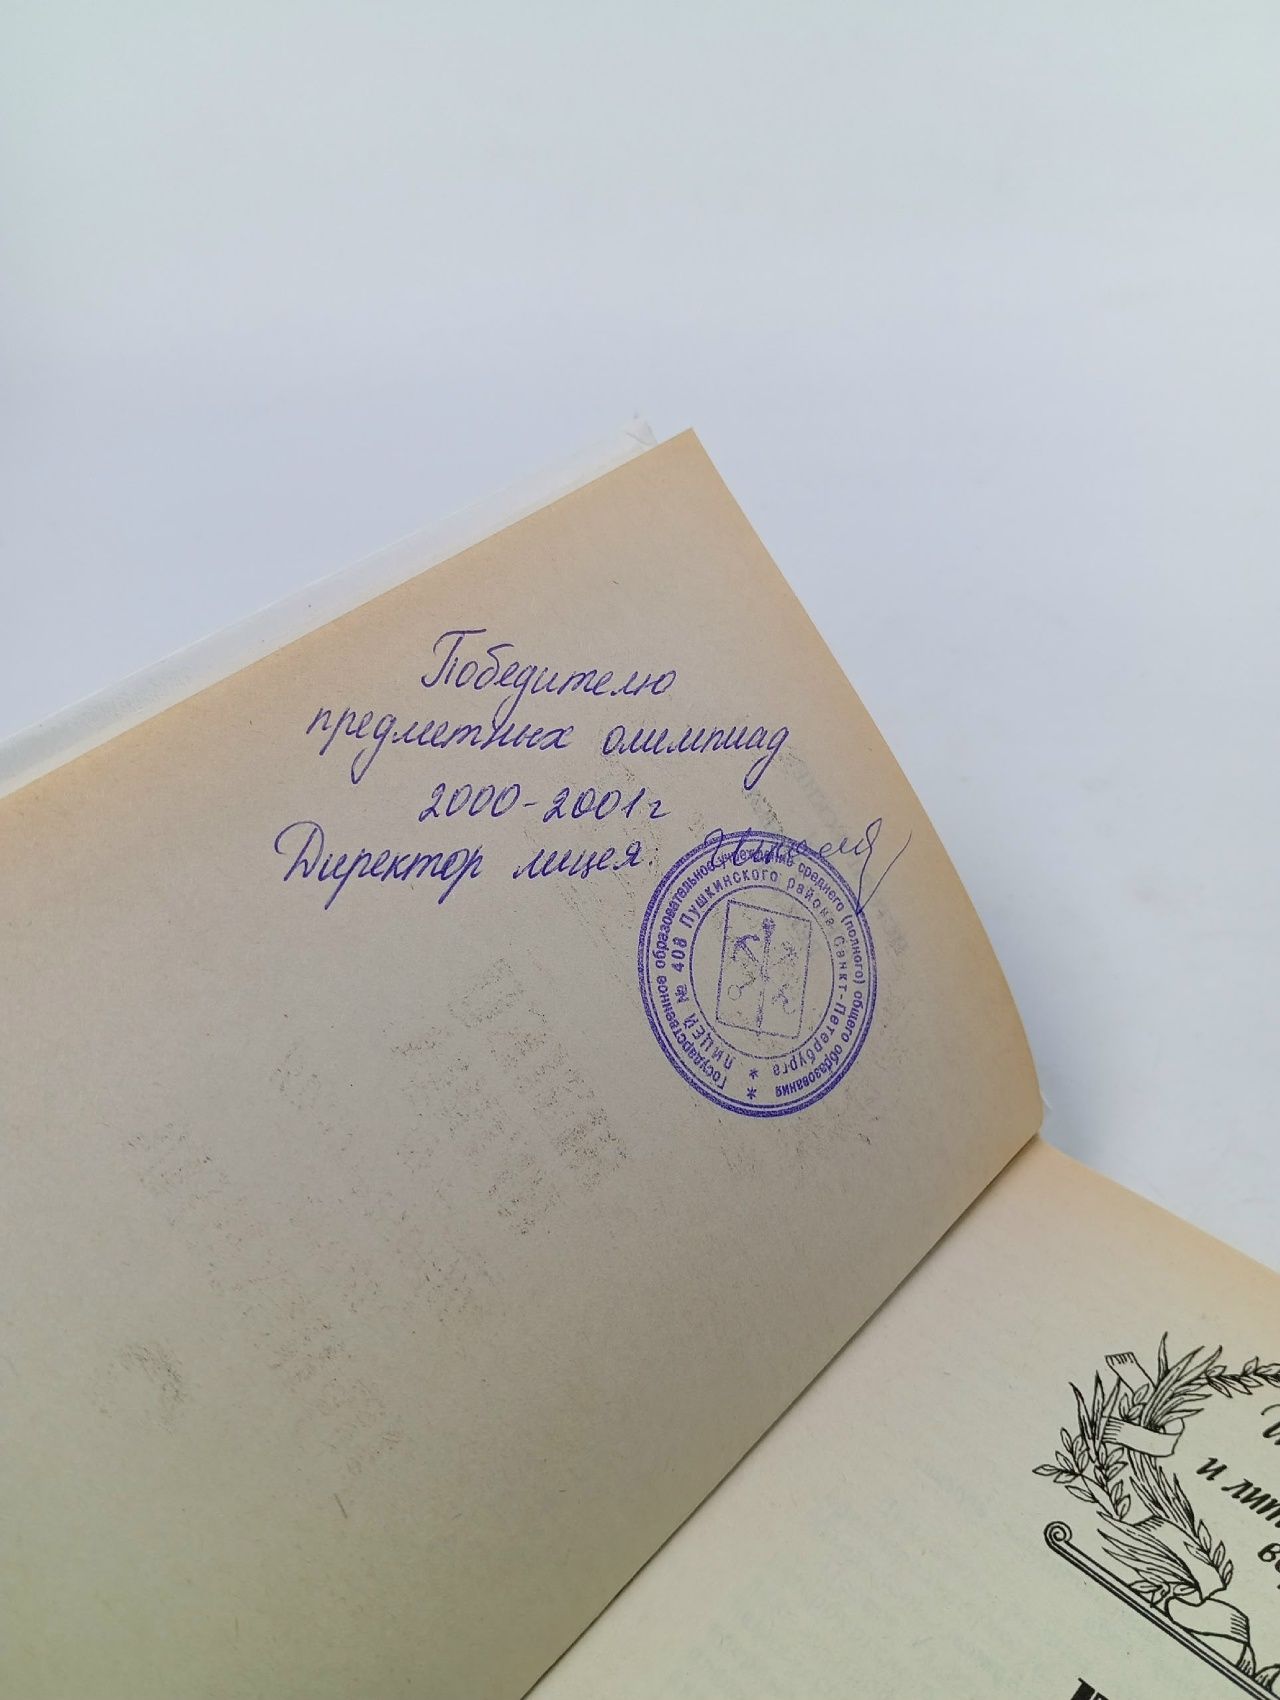 Победителю
предметных олимпиад
2000-2001г
Директор лицея.
Государственное образовательное учреждение среднего (полного) общего образования *
ЛИЦЕЙ № 408 Пушкинского района Санкт-Петербурга *
и лит